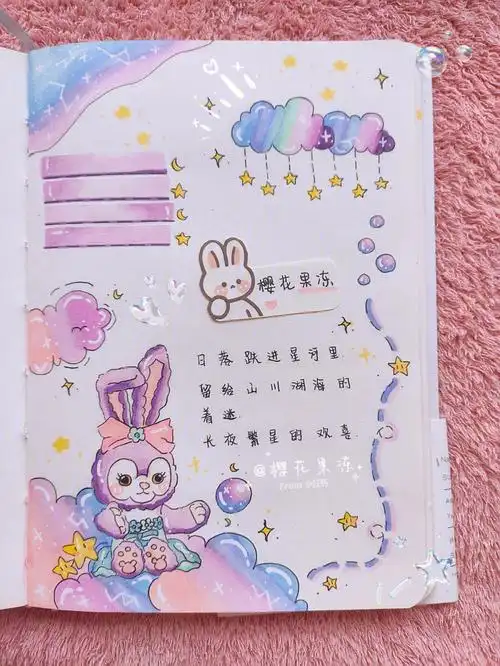 樱花果冻
日落跌进星河里
留给山川湖海的
着迷
长夜繁星的欢喜
@樱花果冻
From